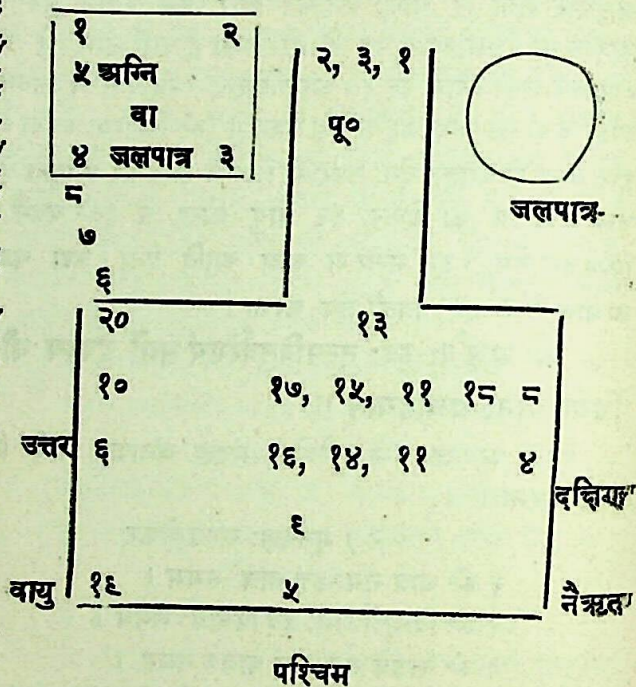 १ २
५ अग्नि
वा
४ जलपात्र ३
२, ३, १
पू०
जलपात्र-
८
७
६
२० १३
१० १७, १५, ११ १८ ८
उत्तर ६ १६, १४, ११ ४
दक्षिण
६
वायु १६ ५ नैऋत
पश्चिम